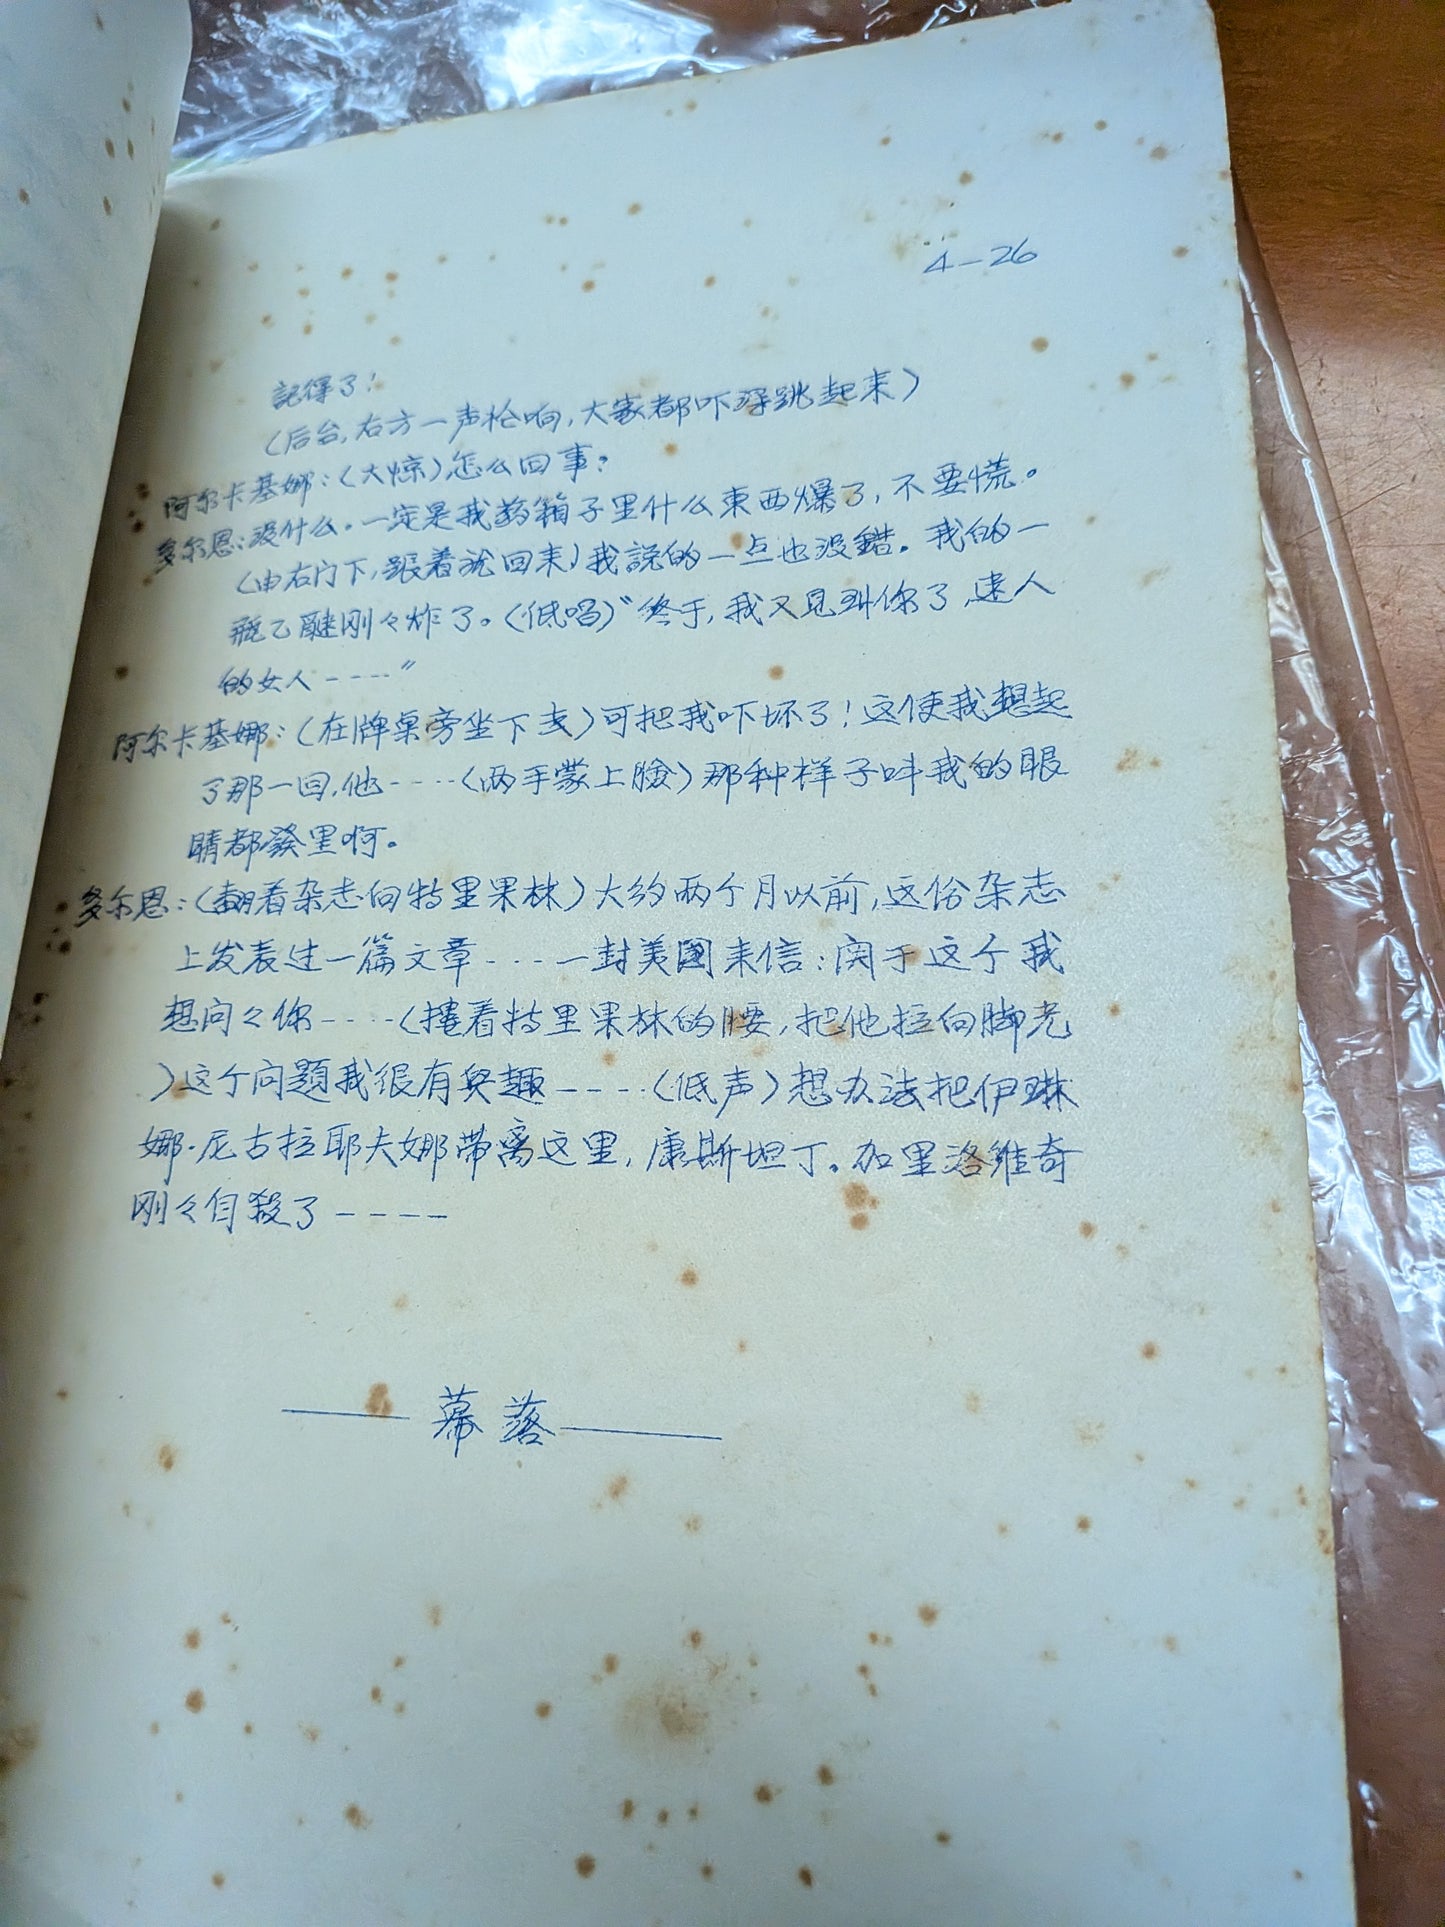 4-26
記得了!
(后台,右方一声枪响,大家都吓得跳起来)
阿尔卡基娜:(大惊)怎么回事?
多尔恩:没什么。一定是我药箱子里什么東西爆了,不要慌。
(由右门下,跟着说回来)我説的一点也没錯。我的一
瓶乙醚刚々炸了。(低唱)“终于,我又见到你了,迷人
的女人----”
阿尔卡基娜:(在牌桌旁坐下去)可把我吓坏了!这使我想起
了那一回,他----(两手蒙上臉)那种样子叫我的眼
睛都發黑啊。
多尔恩:(翻着杂志向特里果林)大约两个月以前,这份杂志
上发表过一篇文章----一封美國来信:関于这个我
想问々你----(搂着特里果林的腰,把他拉向脚光
)这个问題我很有兴趣----(低声)想办法把伊琳
娜·尼古拉耶夫娜带离这里,康斯坦丁。加里洛維奇
刚々自殺了----
——幕落——